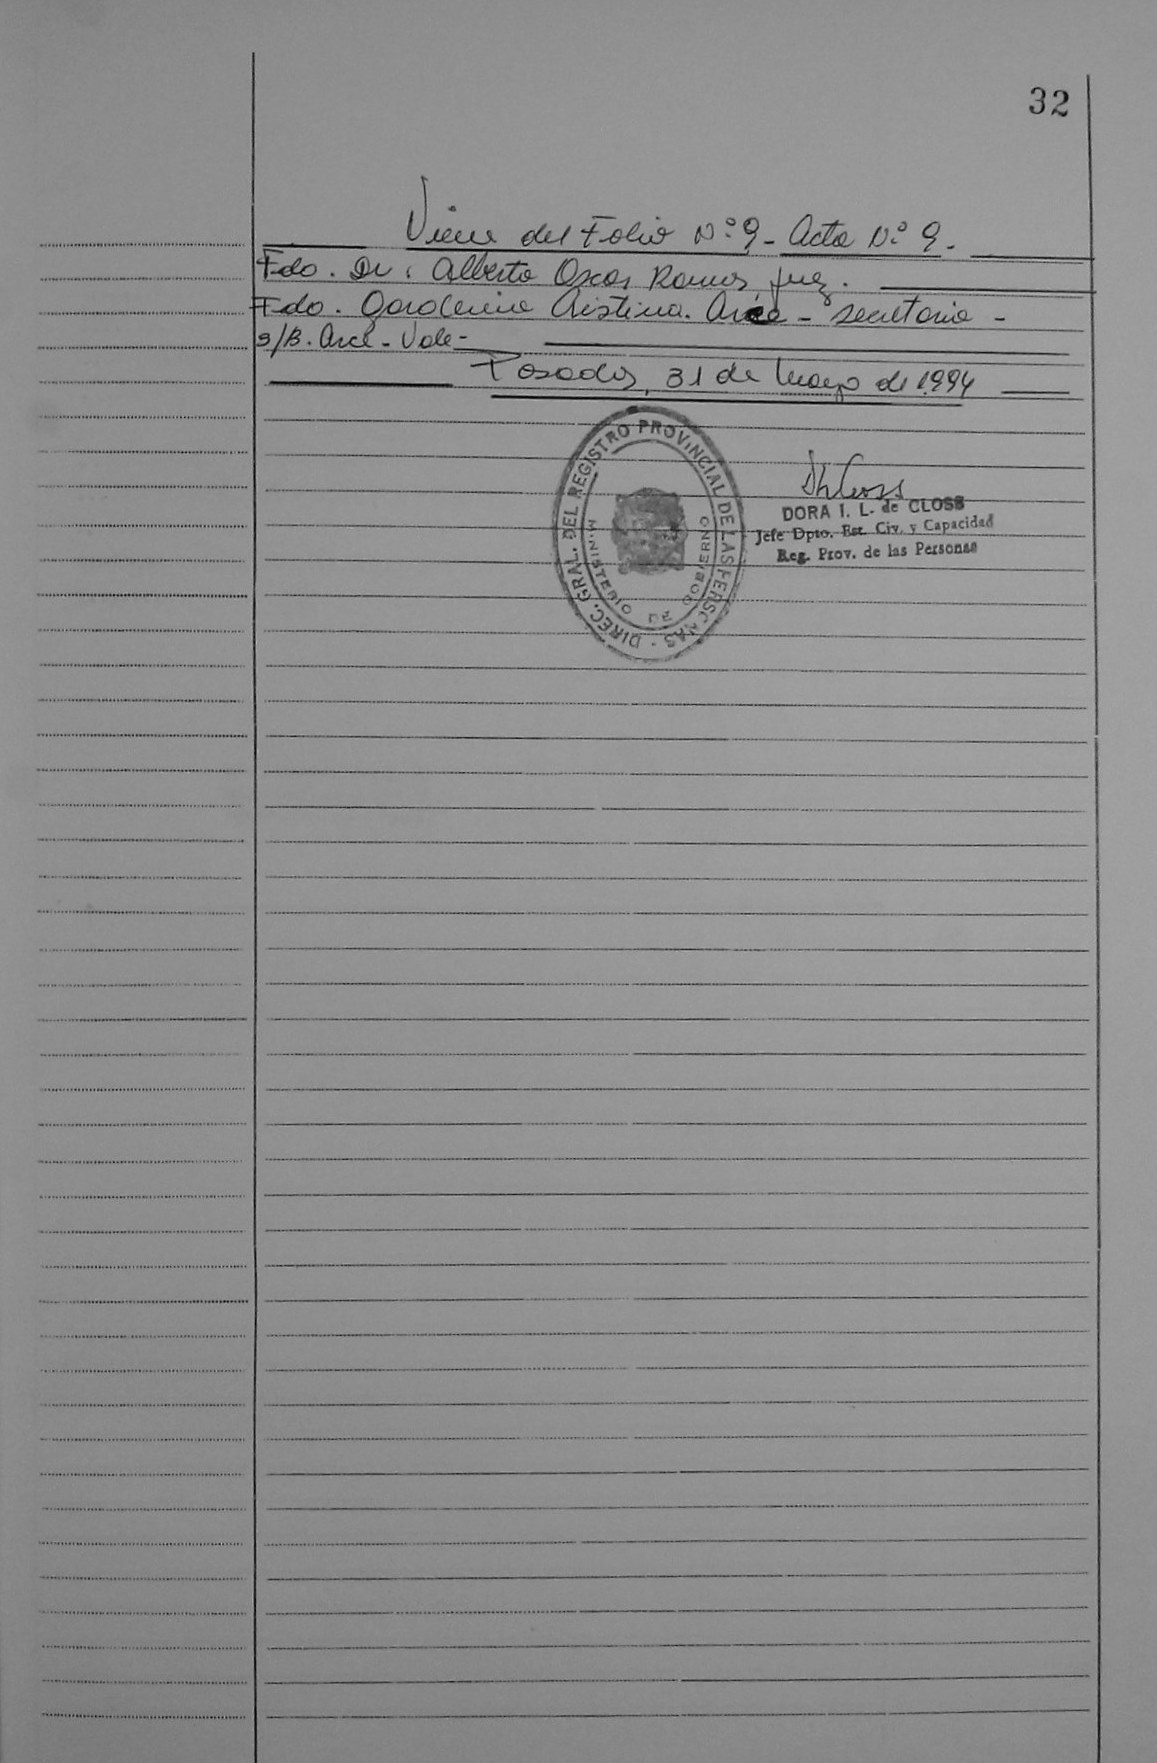 32
Viene del Folio N° 9 - Acta N° 9 -
Fdo. Dr: Alberto Oscar Ramos Juez.
Fdo. Cristina. Arce - Secretaria -
s/B. Arce - Vale -
Posadas, 31 de Mayo de 1994
DIREC. GRAL. DEL REGISTRO PROVINCIAL DE LAS PERSONAS -
MINISTERIO DE GOBIERNO
DORA I. L. de CLOSS
Jefe Dpto. Est. Civ. y Capacidad
Reg. Prov. de las Personas